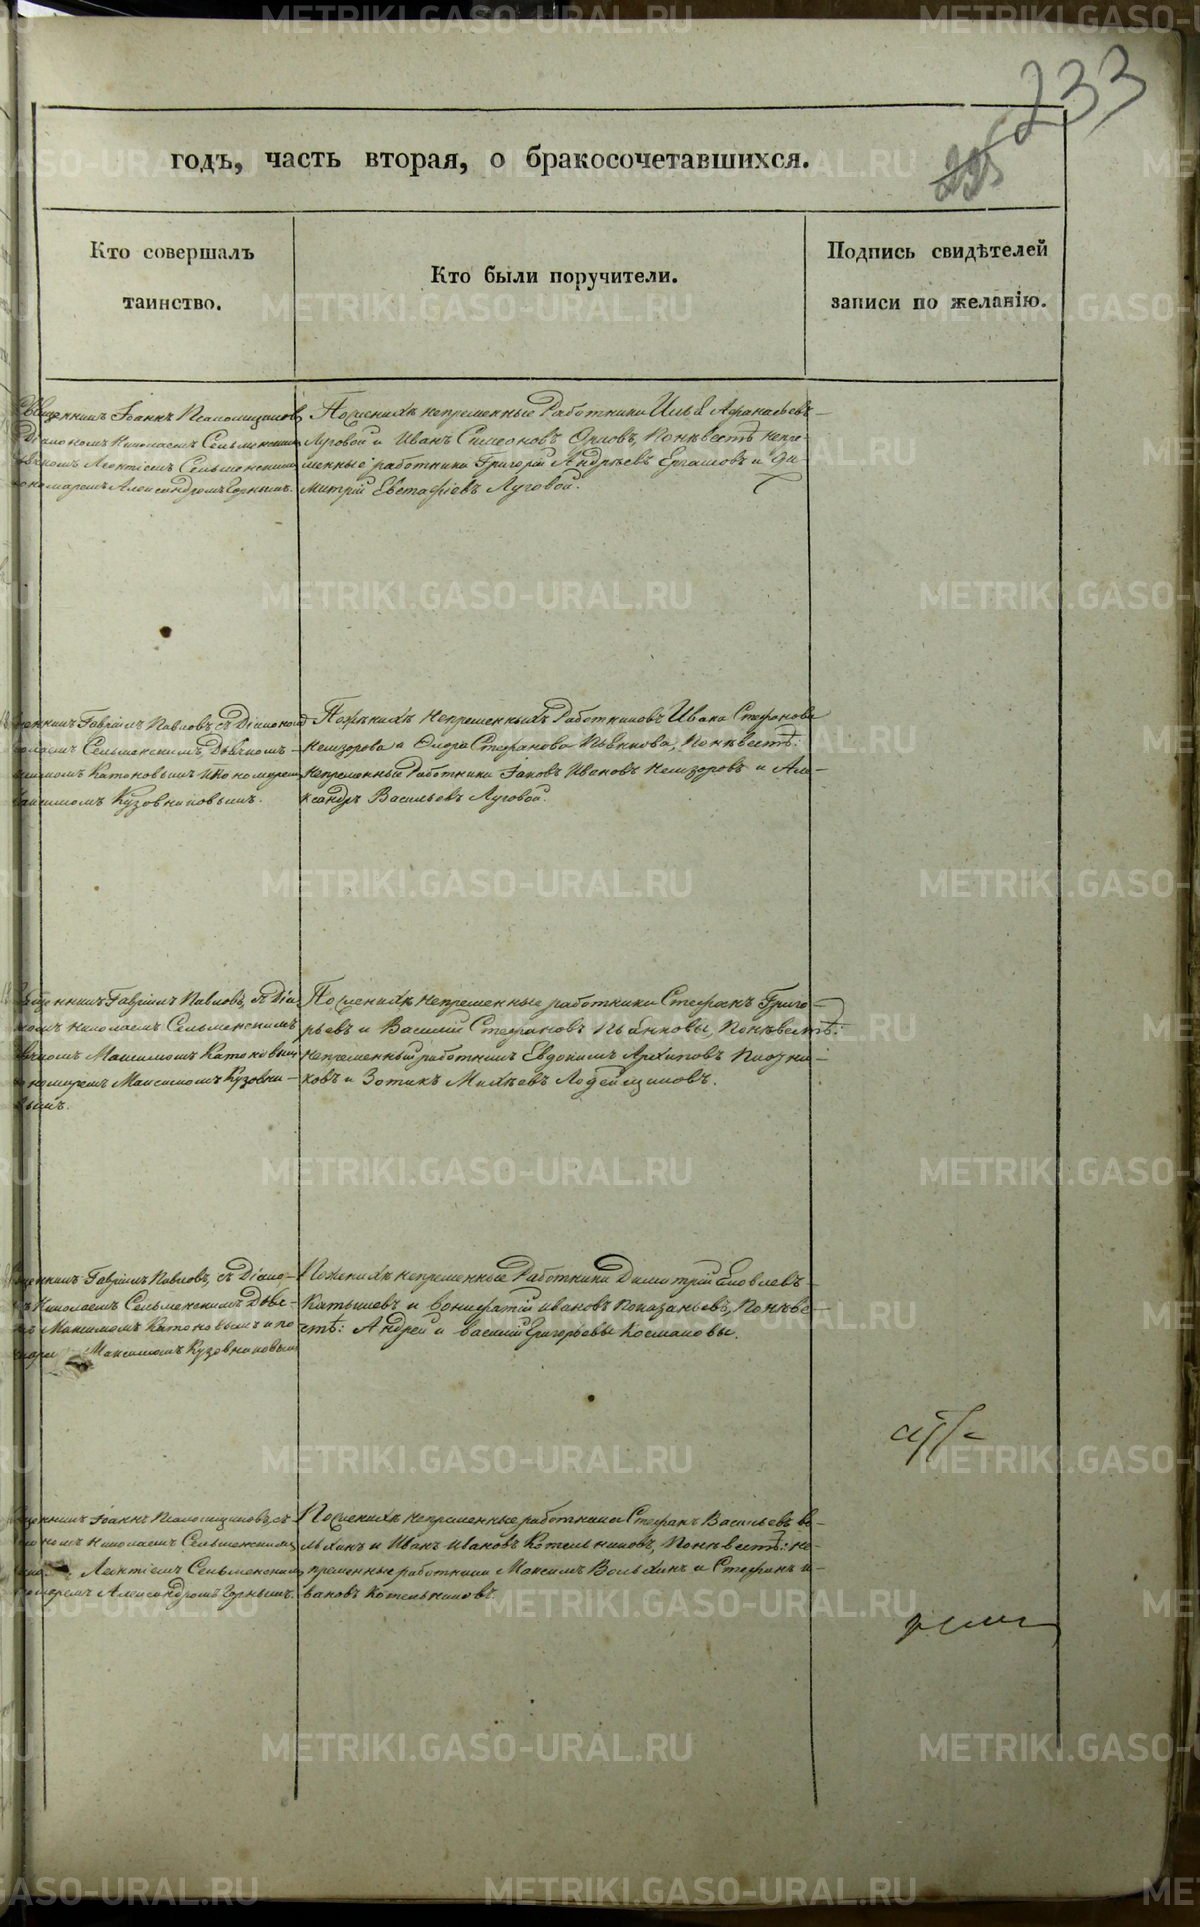 233
225
годъ, часть вторая, о бракосочетавшихся.
Кто совершалъ
таинство.
Кто были поручители.
Подпись свидѣтелей
записи по желанію.
Священникъ Іоаннъ Псаломщиковъ
Діакономъ Николаемъ Сельменскимъ
Леонтіемъ Сельменскимъ
Александромъ Горнымъ.
По женихѣ непременные Работники Илья Афанасьевъ
Луговой и Иванъ Симеоновъ Орловъ, По невестѣ непре-
менные работники Григорій Андреевъ Ергашовъ и Ди-
митрій Евстафіевъ Луговой.
Гавріилъ Павловъ, съ Діакономъ
Сельменскимъ, Дьячкомъ
Катоновымъ и Пономаремъ
Максимомъ Кузовниковымъ.
По женихѣ Непременныхъ Работниковъ Ивана Стефанова
Немзорова и Стефанова Пьянкова, По невестѣ:
непременные Работники Іаковъ Ивановъ Немзоровъ и Але-
ксандръ Васильевъ Луговой.
Гавріилъ Павловъ, съ Діа-
Николаемъ Сельменскимъ
Максимомъ Катоновымъ
Максимомъ Кузовни-
вымъ.
По женихѣ непременные работники Стефанъ Григо-
рьевъ и Василій Стефановъ Пьянковы, По невестѣ:
непременный работникъ Евдокимъ Архиповъ Плотни-
ковъ и Зотикъ Михѣевъ Лодейщиковъ.
Гавріилъ Павловъ, съ Діако-
Николаемъ Сельменскимъ Дьяч-
Максимомъ Катоновымъ и по
Максимомъ Кузовниковымъ
По женихѣ непременные Работники Димитрій Яковлевъ
Катышевъ и Вонифатій Ивановъ Показаньевъ, По неве-
стѣ: Андрей и Василій Григорьевы Космаковы.
Іоаннъ Псаломщиковъ, съ
Николаемъ Сельменскимъ
Леонтіемъ Сельменскимъ
Александромъ Горнымъ.
По женихѣ непременные работники Стефанъ Васильевъ Во-
льхинъ и Иванъ Ивановъ Котельниковъ, По невестѣ: не-
пременные работники Максимъ Вольхинъ и Стефанъ И-
вановъ Котельниковъ.
METRIKI.GASO-URAL.RU